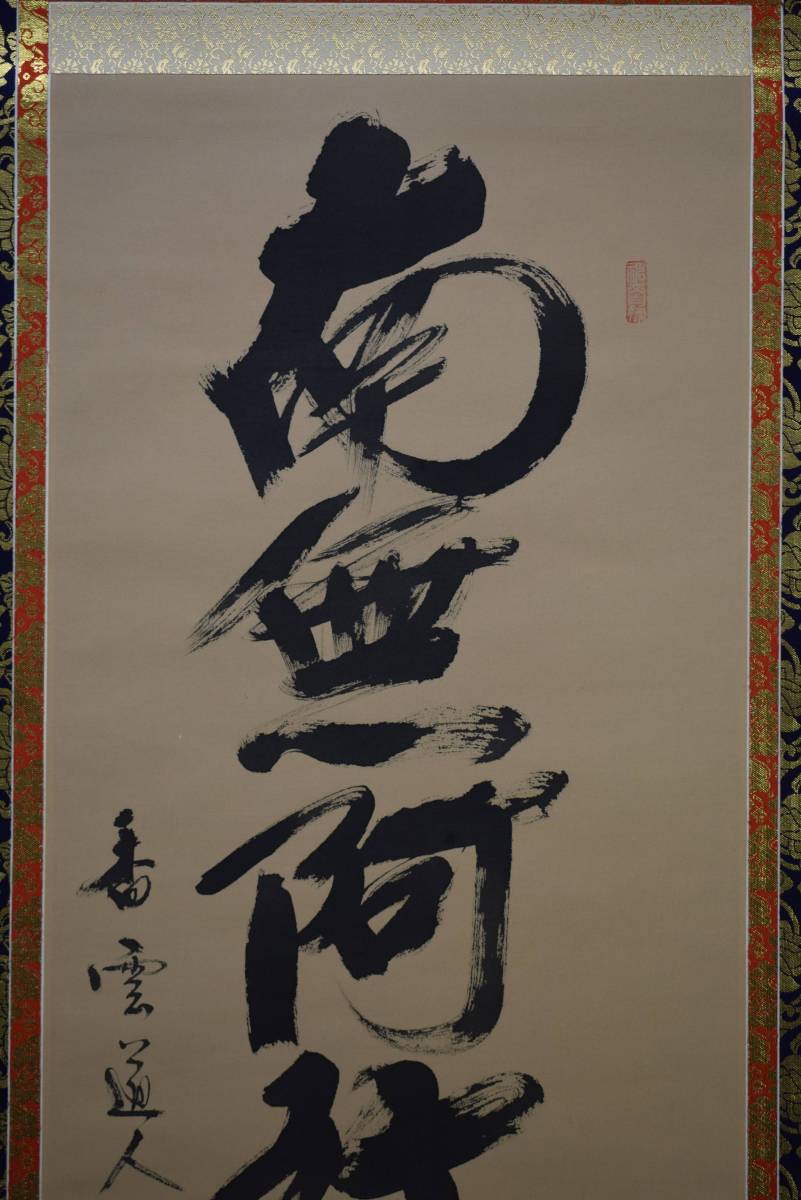 南無阿
香雲道人